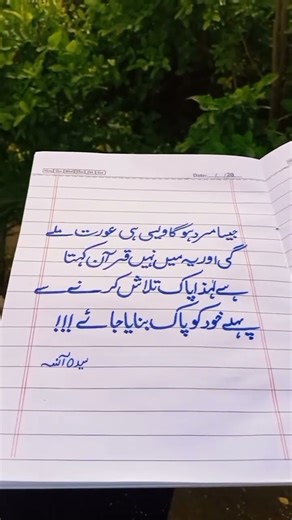 Date: / /20
جیسا مرد ہو گا ویسی ہی عورت ملے
گی اور یہ میں نہیں قرآن کہتا
ہے لہذا پاک تلاش کرنے سے
پہلے خود کو پاک بنایا جائے !!!
سیدہ آئمہ